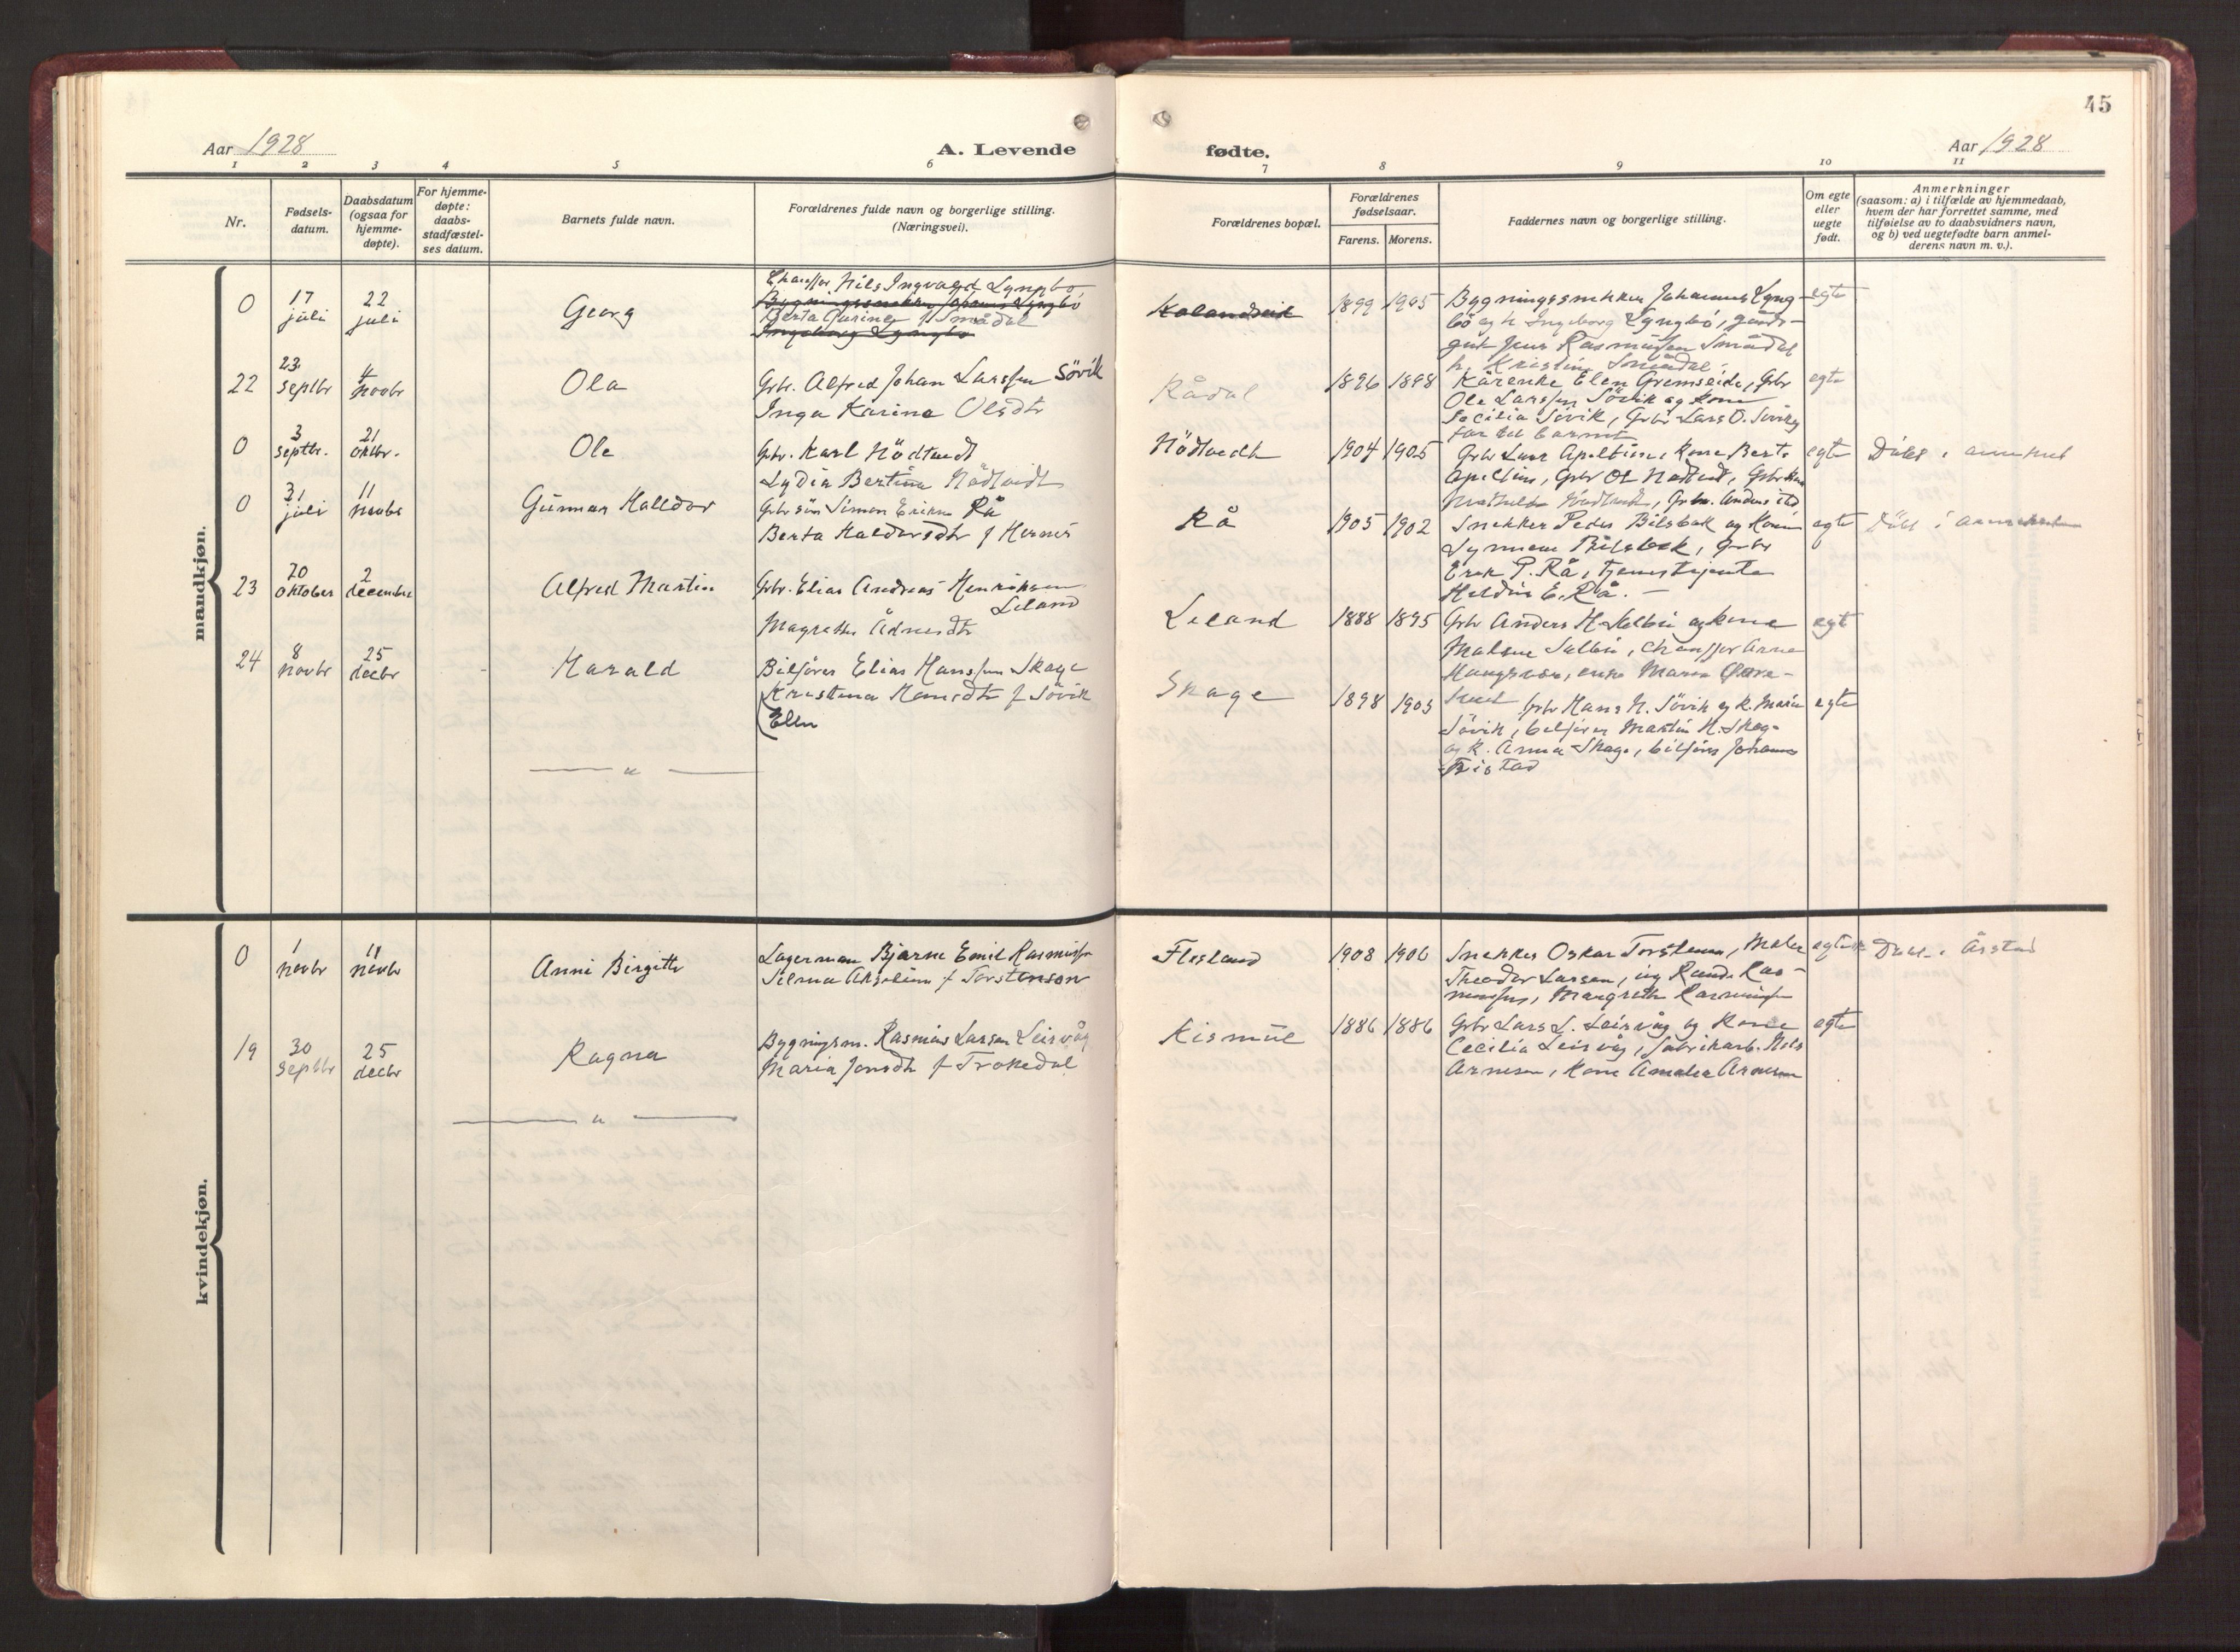 45
Aar 1928
A. Levende
fødte.
Aar 1928
1 2 3 4 5 6 7 8 9 10 11
Nr.
Fødsels-
datum.
Daabsdatum
(ogsaa for
hjemme-
døpte).
For hjemme-
døpte:
daabs-
stadfæstel-
ses datum.
Barnets fulde navn.
Forældrenes fulde navn og borgerlige stilling.
(Næringsvei).
Forældrenes bopæl.
Forældrenes
fødselsaar.
Farens. Morens.
Faddernes navn og borgerlige stilling.
Om egte
eller
uegte
født.
Anmerkninger
(saasom: a) i tilfælde av hjemmedaab,
hvem der har forrettet samme, med
tilføielse av to daabsvidners navn,
og b) ved uegtefødte barn anmel-
derens navn m. v.).
mandkjøn.
0
17
juli
22
juli
Georg
Nils Ingvald Lyngbø
Bygningssnekker Johannes Lyngbö
Berta Smådal
Ingeborg Lyngbø
Kalandseid
1899 1905
Bygningssnekker Johannes Lyng-
bö og h Ingeborg Lyngbö, gaards-
gut Rasmussen Smådal
h. Kristin Smådal
egte
22
23
septbr
4
novbr
Ola
Gbr. Alfred Johan Larssen Sövik
Inga Karina Olsdtr
Rådal
1896 1898
Elen Gremseide, Gbr
Ole Larssen Sövik og kone
Cecilia Sövik, Gbr Lars O. Sövik
far til barnet
egte
0
3
septbr.
21
oktbr.
Ole
Gbr. Karl Nödtvedt
Lydia Bertine Nödtveidt
Nödtvedt
1904 1905
Gbr Lars Apeltun, kone Berte
Apeltun, Gbr Ol Nödtvedt, Gbr
Mathilde
egte
Döbt i
0
31
juli
11
novbr
Gunnar Halldor
Gbr sön Simon Eriksen Rå
Berta Haldorsdtr f
Rå
1905 1902
Snekker Peder Bilsbak og kone
Bilsbak, Gbr
Erik P. Rå, tjenestejente
E. Rå. —
egte
Döbt i
23
20
oktober
2
december
Alfred Martin
Gbr. Elias Andreas Henriksen
Liland
Magrethe
Leland
1888 1895
Gbr Anders H og kone
Malene chauffør Arne
enke Maria
egte
24
8
novbr
25
decbr
Harald
Bilförer Elias Hanssen Skage
Kristina Hansdtr f Sövik
(Elen
Skage
1898 1903
Gbr Hans N. Sövik og k. Marie
Sövik, bilförer Martin H. Skage
og k. Anna Skage, bilförer Johannes
egte
— " —
kvindekjøn.
0
1
novbr
11
novbr
Anni Birgitte
Lagerman Bjarne Emil Rasmussen
f Torstenson
Flesland
1908 1906
Snekker Oskar Torstensen, Maler
Theodor Larsen,
Margrethe Rasmussen
egte
Döbt i Årstad
19
30
septbr
25
decbr
Ragna
Bygningsm. Rasmus Larsen Leirvåg
Maria Jonsdtr f Trokedal
Kismul
1886 1886
Gbr Lars L. Leirvåg og kone
Cecilia Leirvåg, fabrikarb. Nils
Arnesen, kone Amalia Arnesen
egte
— " —